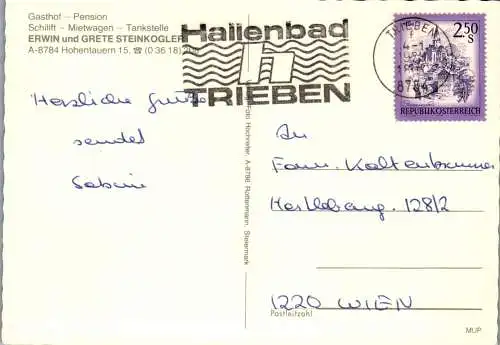 Gasthof - Pension
Schilift - Mietwagen - Tankstelle
ERWIN und GRETE STEINKOGLER
A-8784 Hohentauern 15, ☎ (0 36 18)
Hallenbad
h
TRIEBEN
TRIEBEN
8784
2.50
S
REPUBLIK ÖSTERREICH
Herzliche Grüße
sendet
Sabine
Foto Hochreiter, A-8786 Rottenmann, Steiermark
An
Fam. Kaltenbrunner
128/2
1220 WIEN
Postleitzahl
MUP